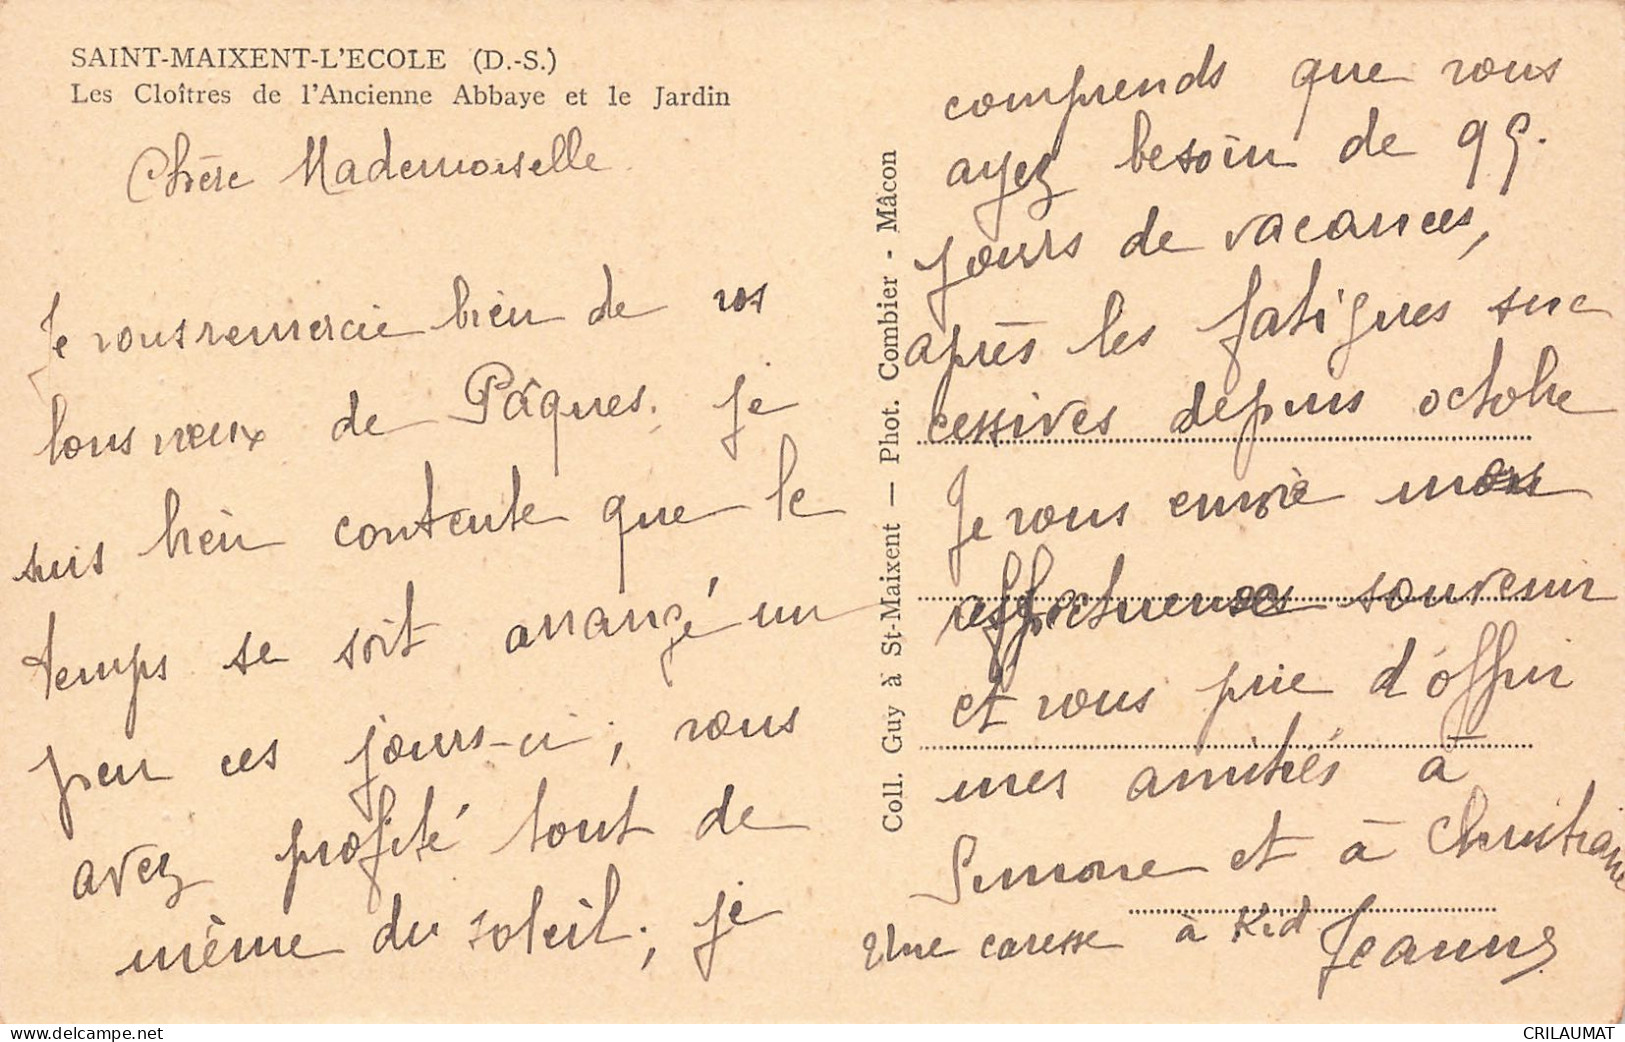 SAINT-MAIXENT-L'ECOLE (D.-S.)
Les Cloîtres de l'Ancienne Abbaye et le Jardin
Chère Mademoiselle
Je vous remercie bien de vos
bons vœux de Pâques. je
suis bien contente que le
temps se soit arrangé un
peu ces jours-ci ; vous
avez profité tout de
même du soleil ; je
Coll. Guy à St-Maixent — Phot. Combier - Mâcon
comprends que vous
ayez besoin de
jours de vacances,
après les fatigues suc
cessives depuis octobre
Je vous envoie mon
affectueux souvenir
et vous prie d'offrir
mes amitiés à
Simone et à Christiane
Une caresse à Kid Jeanne
www.delcampe.net
CRILAUMAT